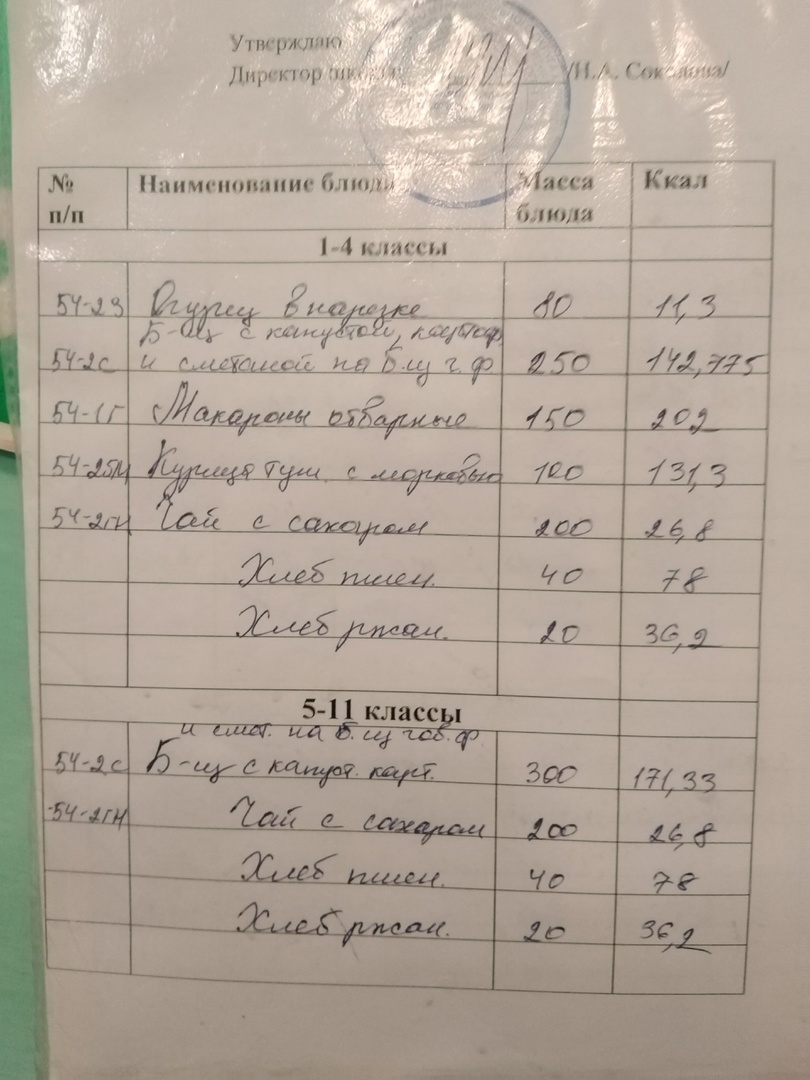 Утверждаю
Директор школы /Н.А. Соколова/
№ п/п Наименование блюда Масса блюда Ккал
1-4 классы
54-2З Огурец в нарезке 80 11,3
Б-щ с капустой, картоф.
54-2С и сметаной на б.щ г.ф 250 142,775
54-1Г Макароны отварные 150 202
54-25М Курица туш. с морковью 100 131,3
54-2ГН Чай с сахаром 200 26,8
Хлеб пшен. 40 78
Хлеб ржан. 20 36,2
5-11 классы
и смет. на б.щ гов.ф
54-2С Б-щ с капуст. карт. 300 171,33
54-2ГН Чай с сахаром 200 26,8
Хлеб пшен. 40 78
Хлеб ржан. 20 36,2